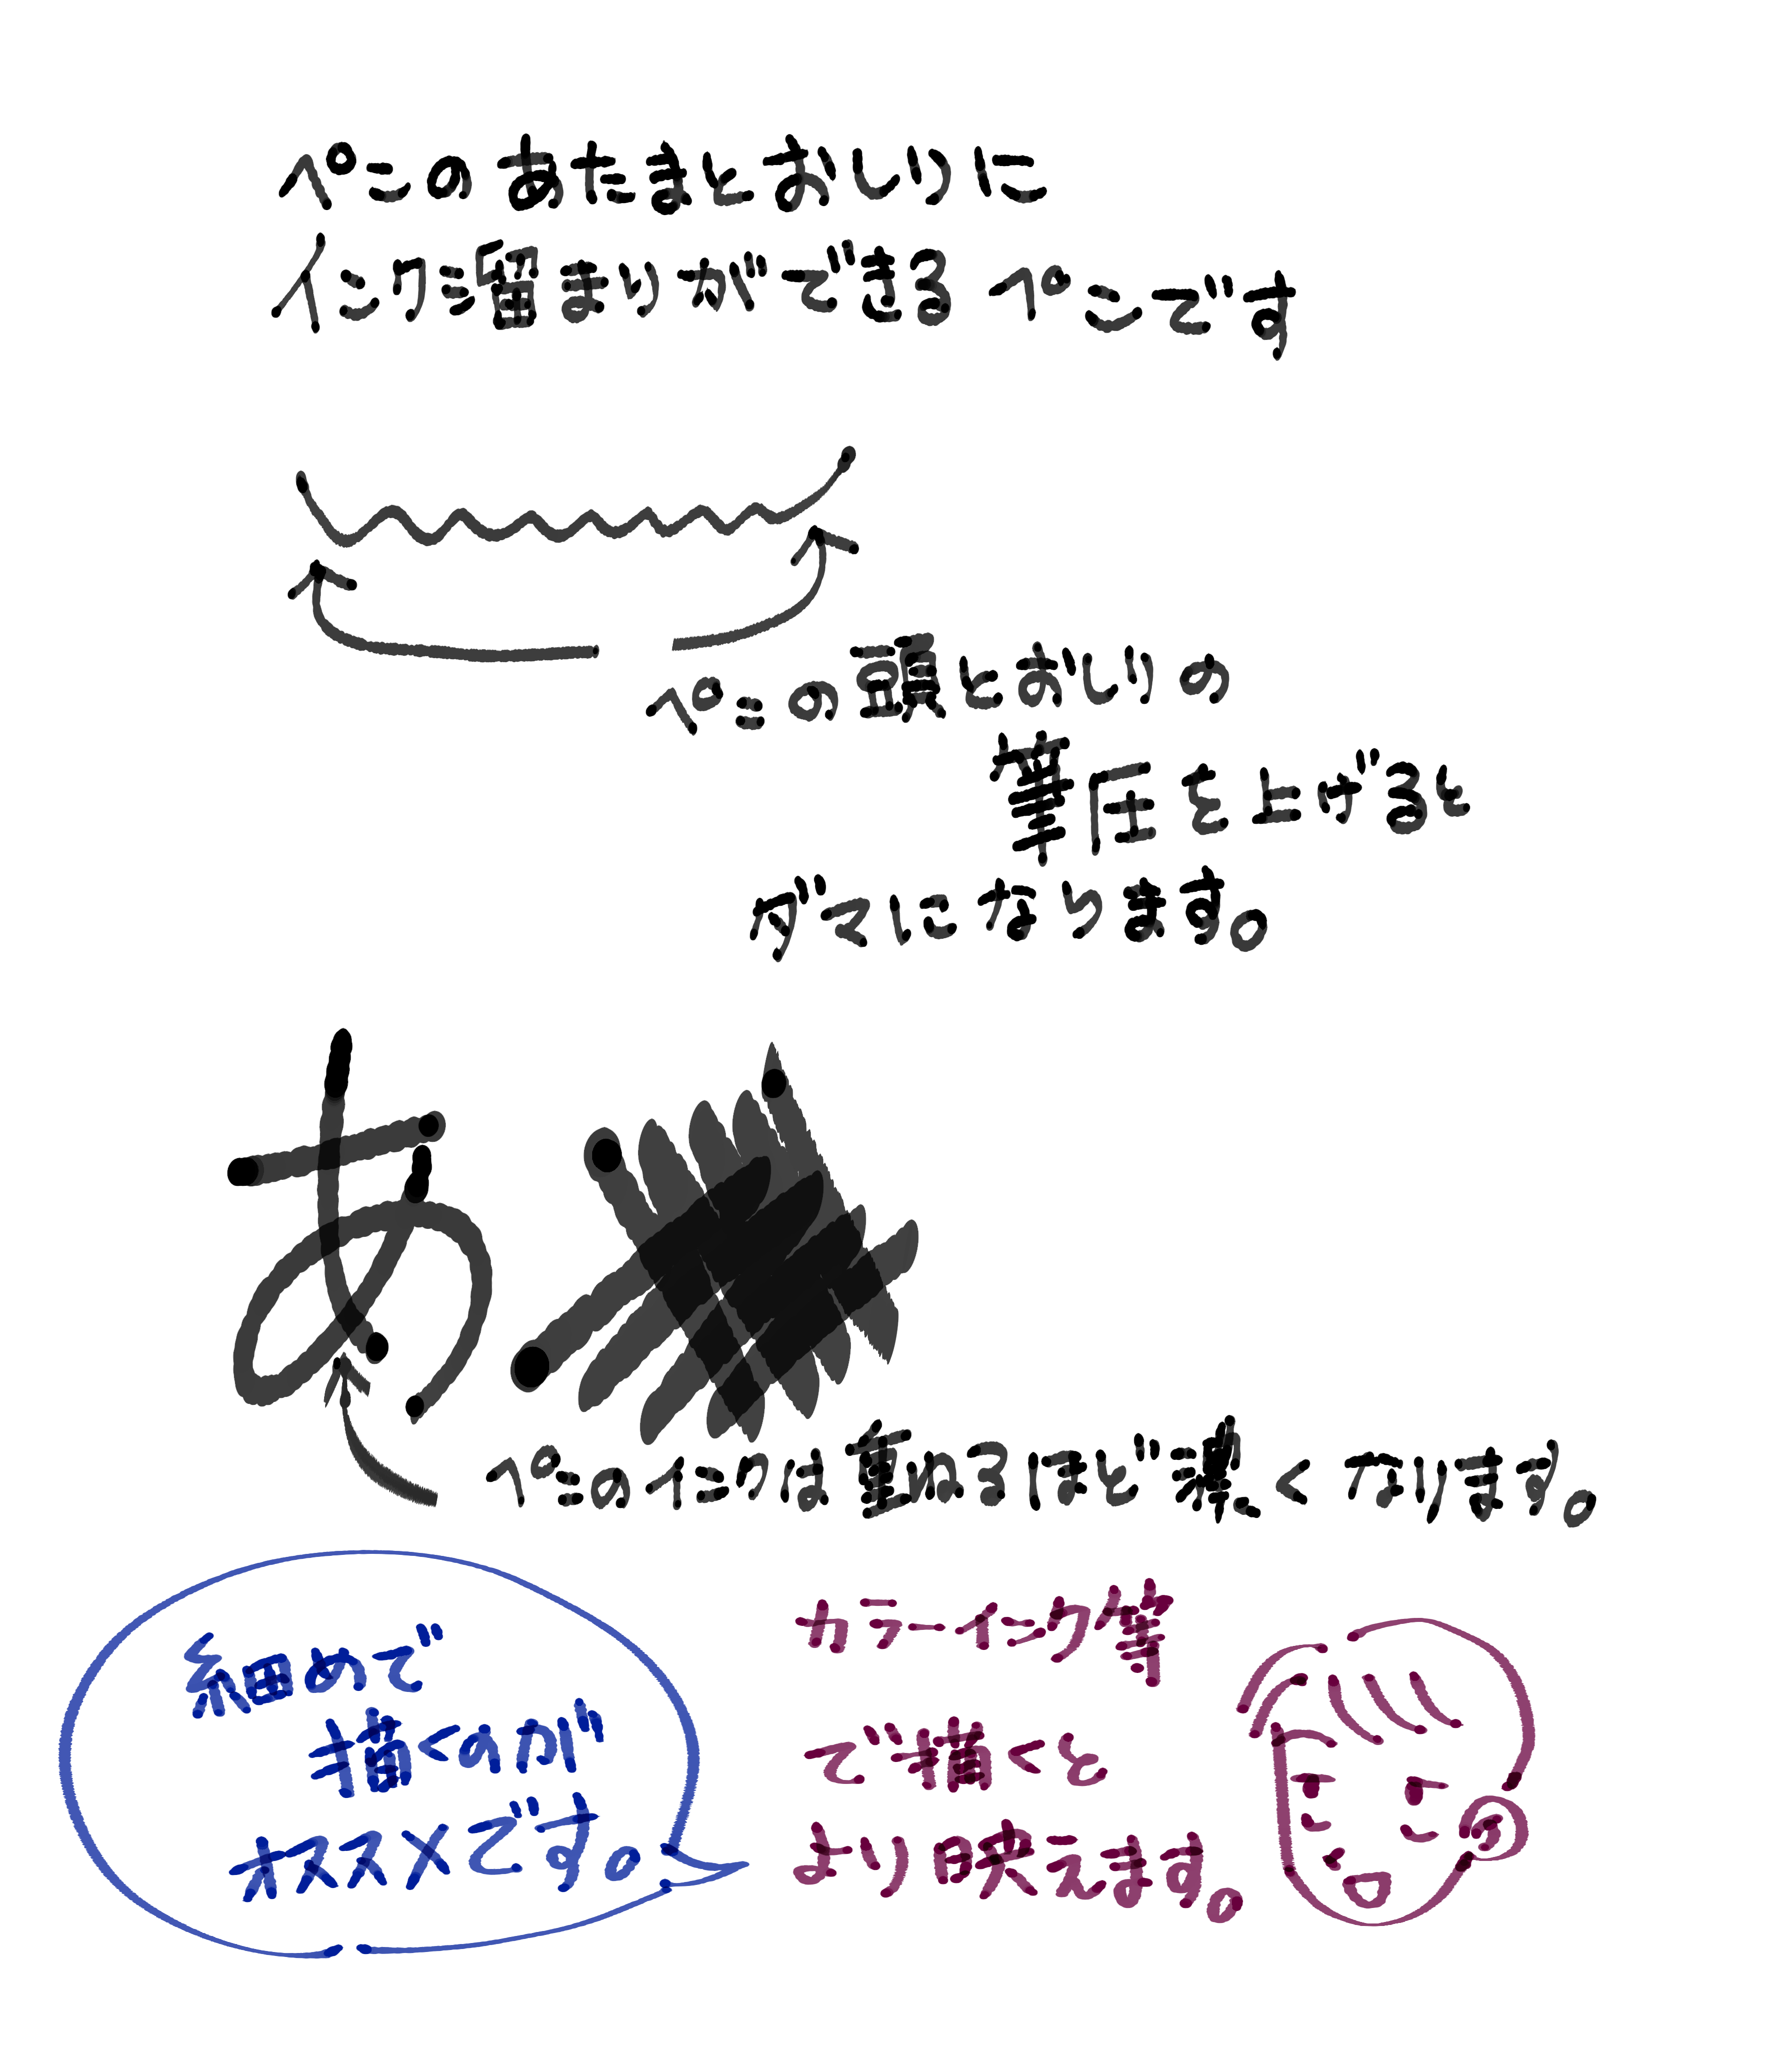 ペンのあたまとおしりに
インク溜まりができるペンです
ペンの頭とおしりの
筆圧を上げると
ダマになります。
あ
ペンのインクは重ねるほど濃くなります。
細めで
描くのが
オススメです。
カラーインク等
で描くと
より映えます。